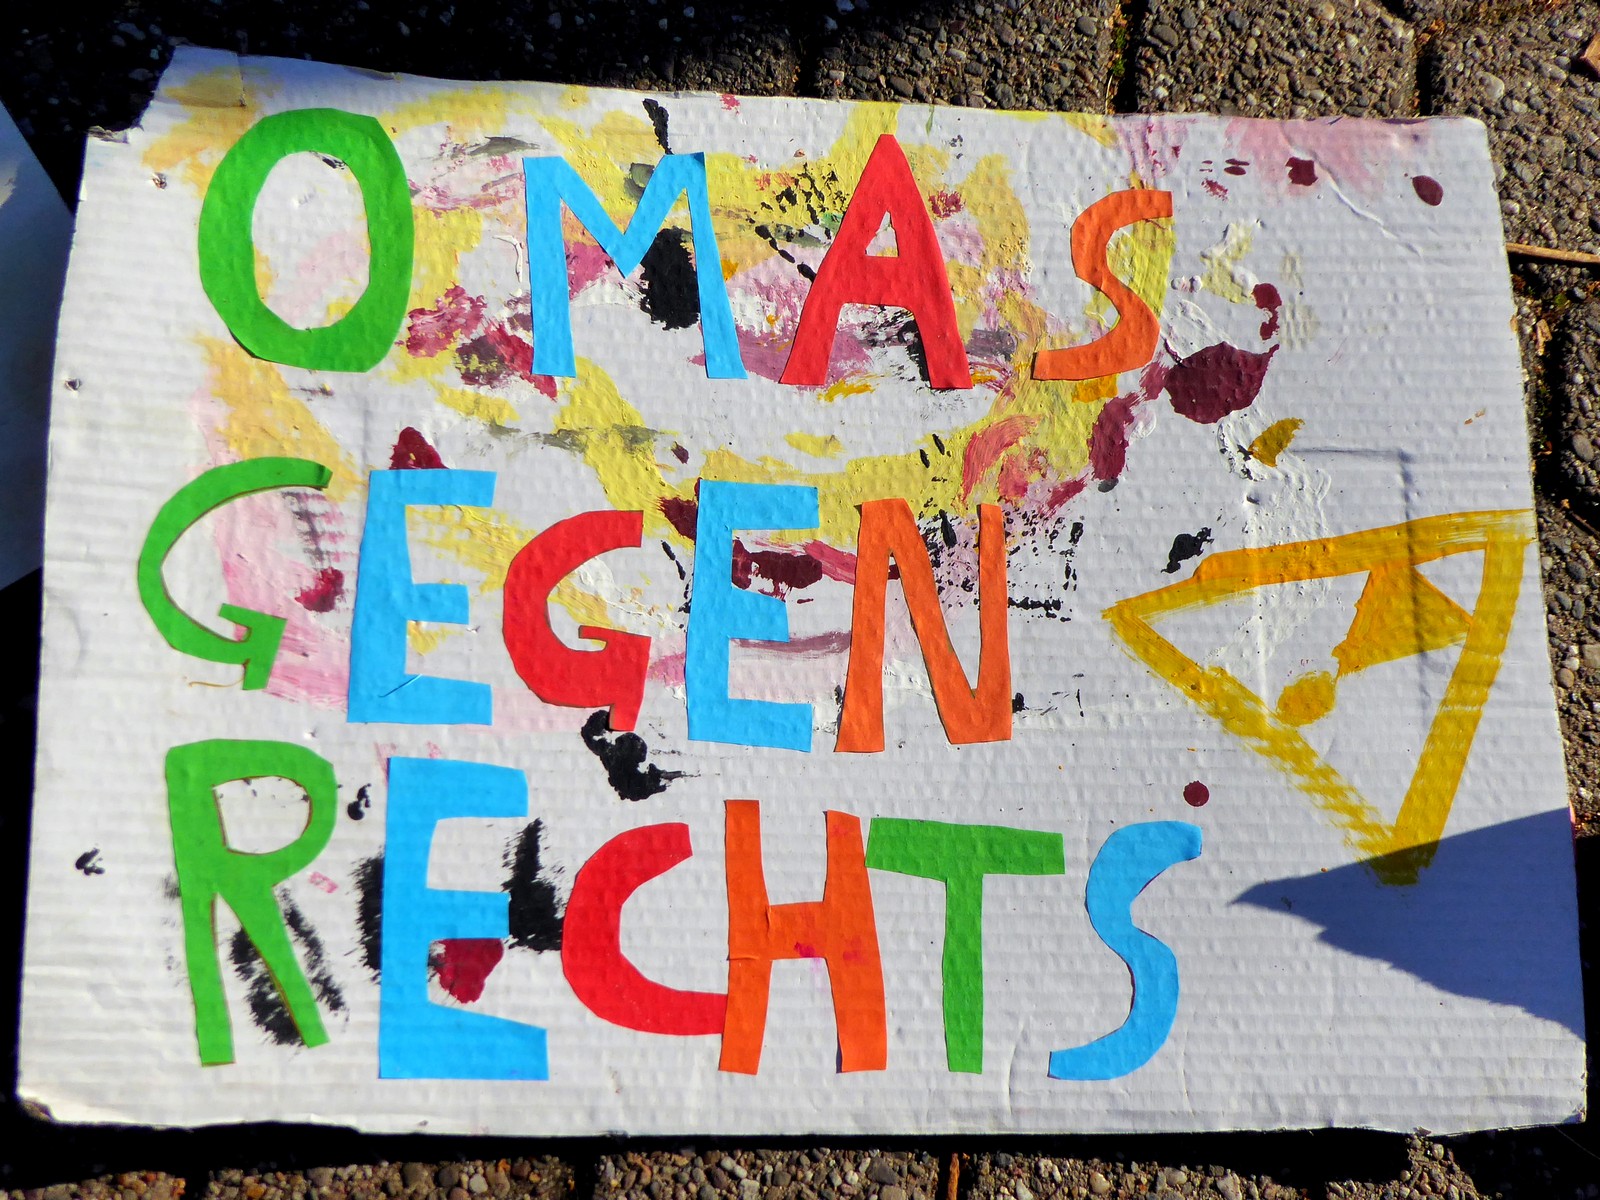 OMAS
GEGEN
RECHTS